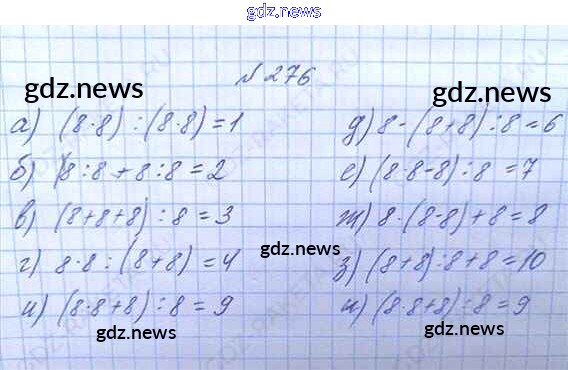 gdz.news
№ 276
gdz.news
gdz.news
а) (8·8) : (8·8) = 1
д) 8 - (8+8) : 8 = 6
б) 8 : 8 + 8 : 8 = 2
е) (8·8-8) : 8 = 7
в) (8+8+8) : 8 = 3
ж) 8 · (8-8) + 8 = 8
г) 8·8 : (8+8) = 4
gdz.news
з) (8+8) : 8 + 8 = 10
и) (8·8+8) : 8 = 9
и) (8·8+8) : 8 = 9
gdz.news
gdz.news